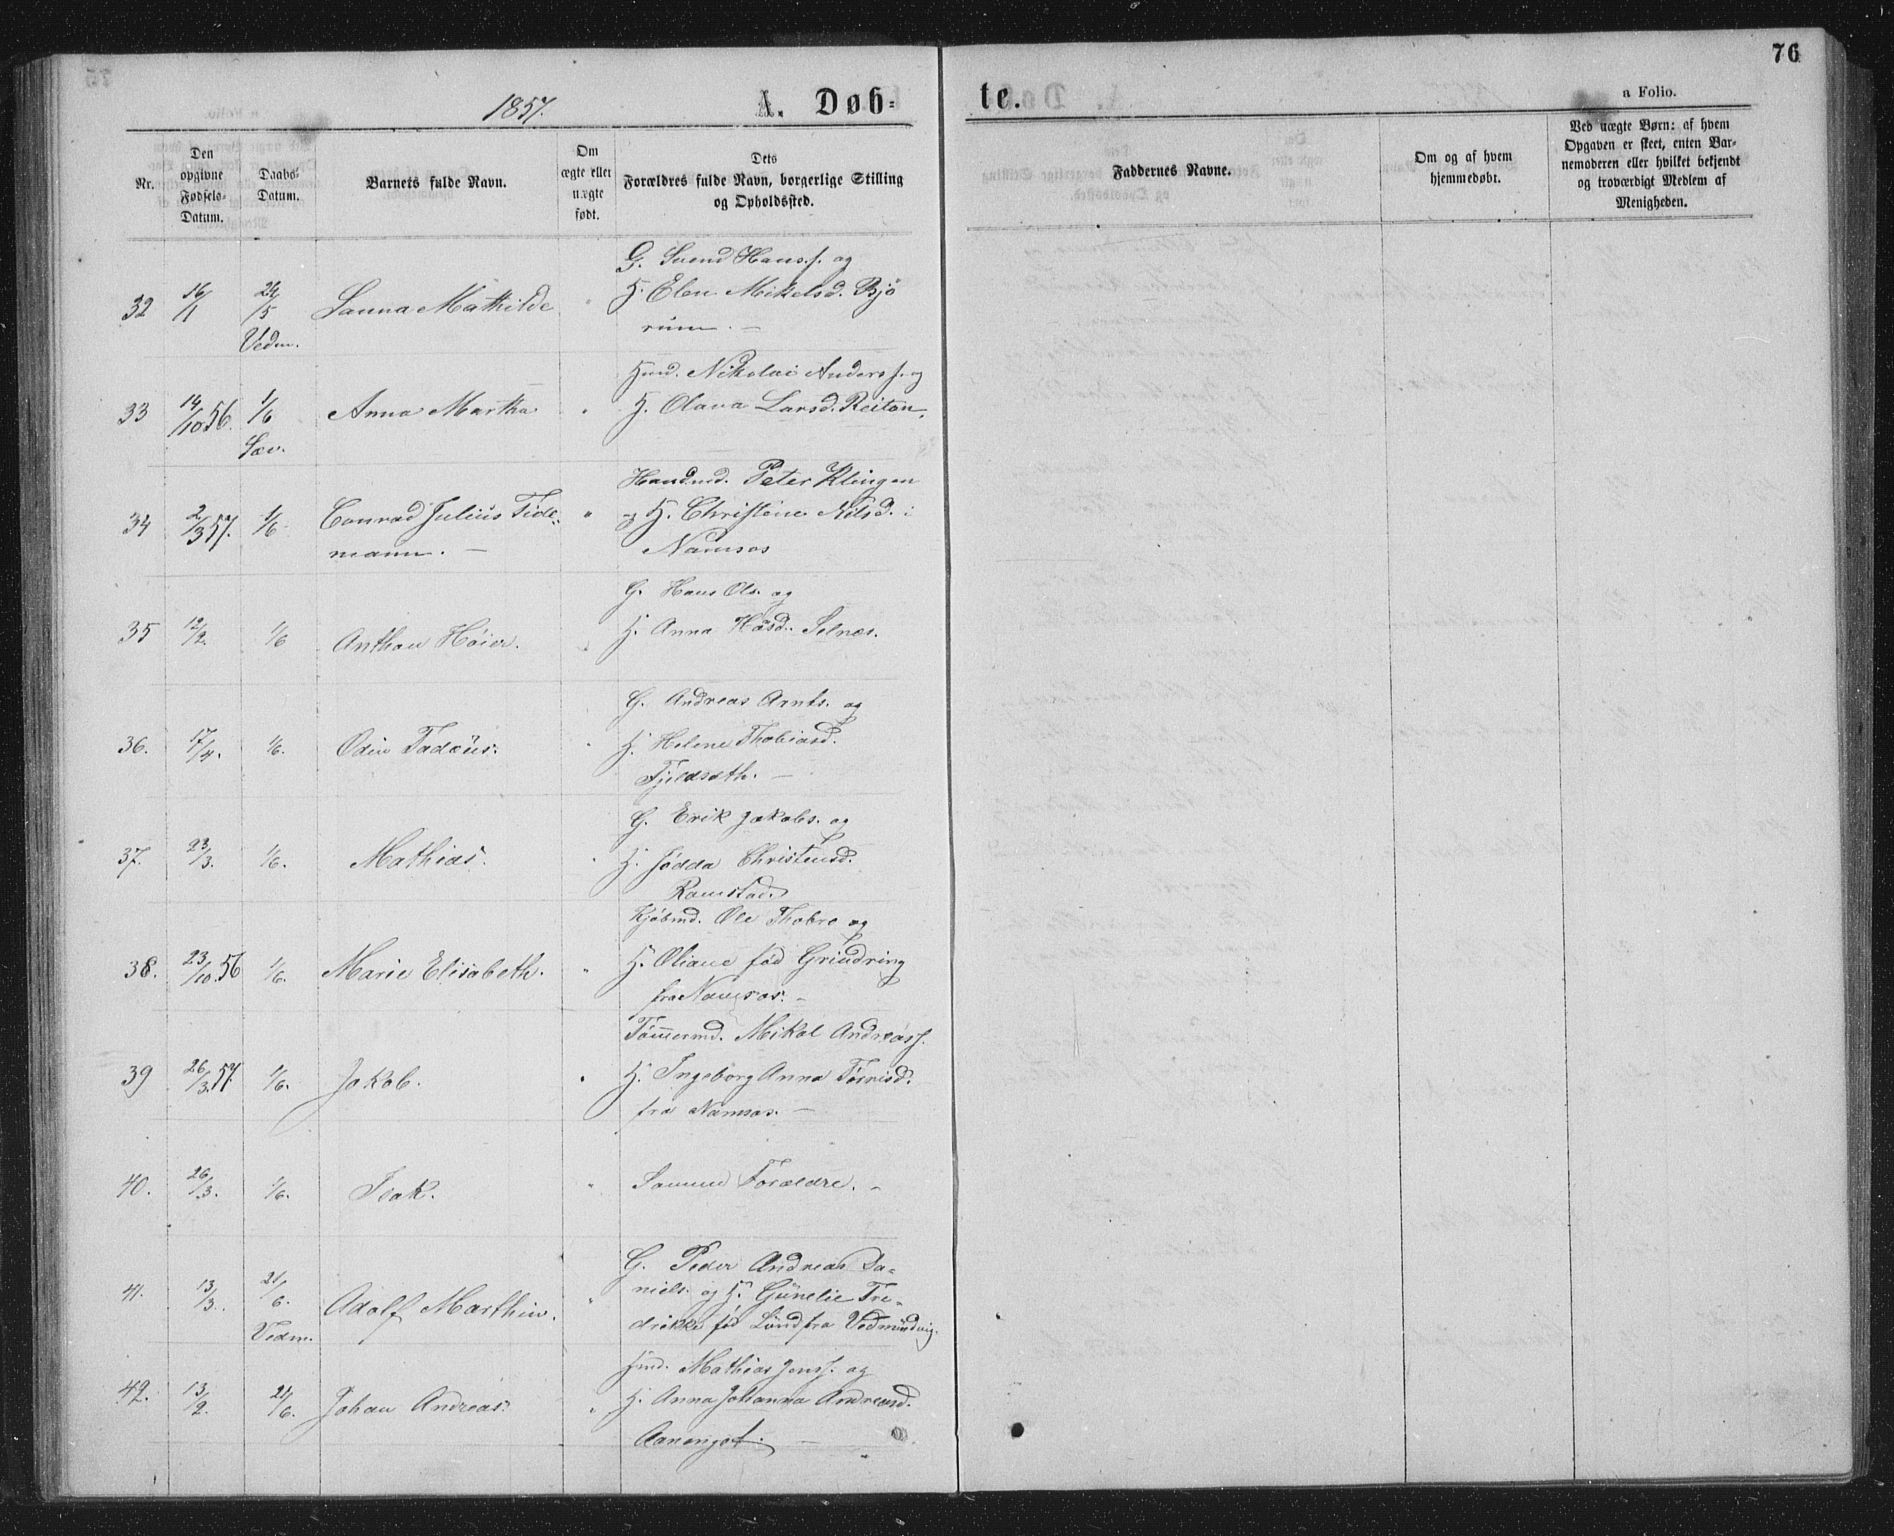 76
1857.
A. Døb-
te.
a Folio.
Nr.
Den
opgivne
Fødsels-
Datum.
Daabs-
Datum.
Barnets fulde Navn.
Om
ægte eller
uægte
født.
Dets
Forældres fulde Navn, borgerlige Stilling
og Opholdssted.
Faddernes Navne.
Om og af hvem
hjemmedøbt.
Ved uægte Børn: af hvem
Opgaven er skeet, enten Bar-
nemoderen eller hvilket bekjendt
og troværdigt Medlem af
Menigheden.
G. Svend Hanss. og
32 16/1 24/5 Sanna Mathilde " H. Elen Mikelsd. Bjö
Vedm. rum. —
Hmd. Nikolai Anders s. og
33 14/10 56. 1/6 Anna Martha " H. Olava Larsd. Reitan.
Sæv.
Handmd. Peter Klingen
34 2/3 57. 1/6 Conrad Julius Tide- " og H. Christene Nilsd. i
mann. — Namsos
G. Hans Ols. og
35 12/2. 1/6 Anthon Höier. " H. Anna Hasd. Selnæs.
G. Andreas Arnts. og
36. 17/4. 1/6. Odin Tadæus. " H. Helene Thobiasd.
Fjeldsæth. —
G. Erik Jakobs. og
37. 23/3. 1/6. Mathias. " H. Jödda Christensd.
Ramstad.
Kjöbmd. Ole Thobro og
38. 23/10. 56 1/6. Marie Elisabeth. " H. Oliane föd Grindring
fra Namsos. —
Tömmermd. Mikal Andreass.
39 26/3. 57. 1/6. Jakob. " H. Ingeborg Anna Törrisd.
fra Namsos. —
40. 26/3. 1/6. Isak. " Samme Forældre. —
G. Peder Andreas Da-
41. 13/3. 21/6. Adolf Marthin. " niels. og H. Günelie Fre-
Vedm. drikke föd Lünd fra Vedmündvig.
Hmd. Mathias Jenss. og
42. 13/2. 21/6. Johan Andreas. " H. Anna Johanna Andreasd.
Aanenget. —